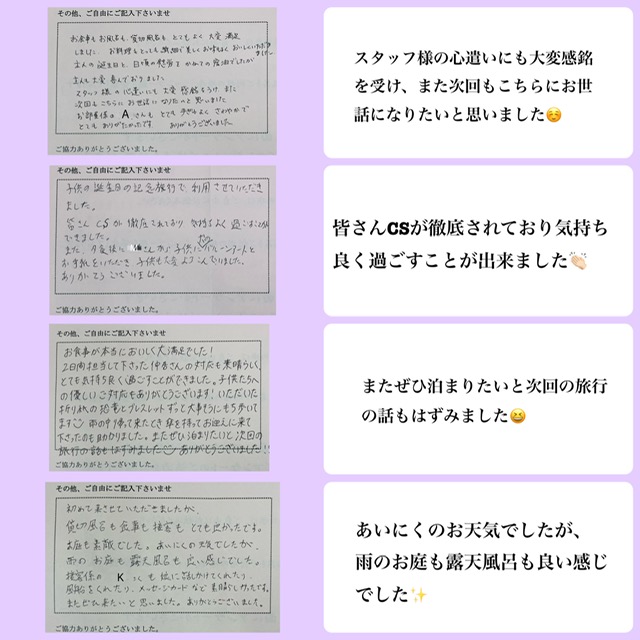 その他、ご自由にご記入下さいませ
お食事もお風呂も、貸切風呂も、とてもよく大変満足
しました。お料理もとっても繊細で美しくお味もよくおいしくいただき
ました。
主人の誕生日と、日頃の慰労をかねての宿泊でしたが
主人も大変喜んでおりました。
スタッフ様の心遣いにも大変感銘をうけ、また
次回もこちらにお世話になりたいと思いました
お部屋係のAさんもとても手ぎわよくさわやかで
とてもありがたかったです ありがとうございました。
ご協力ありがとうございました。
スタッフ様の心遣いにも大変感銘
を受け、また次回もこちらにお世
話になりたいと思いました☺️
その他、ご自由にご記入下さいませ
子供の誕生日の記念旅行で利用させていただき
ました。
皆さんCSが徹底されており気持よく過ごすことが
できました。
また、夕食後に さんから子供にバルーンアートと
お手紙をいただき子供も大変よろこんでいました。
ありがとうございました。
ご協力ありがとうございました。
皆さんCSが徹底されており気持ち
良く過ごすことが出来ました👏🏻
その他、ご自由にご記入下さいませ
お食事が本当においしく大満足でした!
2日間担当して下さった仲居さんの対応も素晴らしく、
とても気持ち良く過ごすことができました。子供たちへ
の優しいご対応もありがとうございます!いただいた
折り紙の恐竜とブレスレットずっと大事そうにもち歩いて
ます 雨の中帰って来たとき傘を持ってお迎えに来て
下さったのも助かりました。またぜひ泊まりたいと次回の
旅行の話もはずみました ありがとうございました!!
ご協力ありがとうございました。
またぜひ泊まりたいと次回の旅行
の話もはずみました😆
その他、ご自由にご記入下さいませ
初めて来させていただきましたが、
貸切風呂も食事も接客もとても良かったです。
お庭も素敵でした。あいにくの天気でしたが、
雨のお庭も露天風呂も良い感じでした。
接客係のK さんも に話しかけてくれたり、
風船をくれたり、メッセージカードなど素晴らしかったです。
またぜひ来たいと思いました。ありがとうございました。
ご協力ありがとうございました。
あいにくのお天気でしたが、
雨のお庭も露天風呂も良い感じ
でした✨